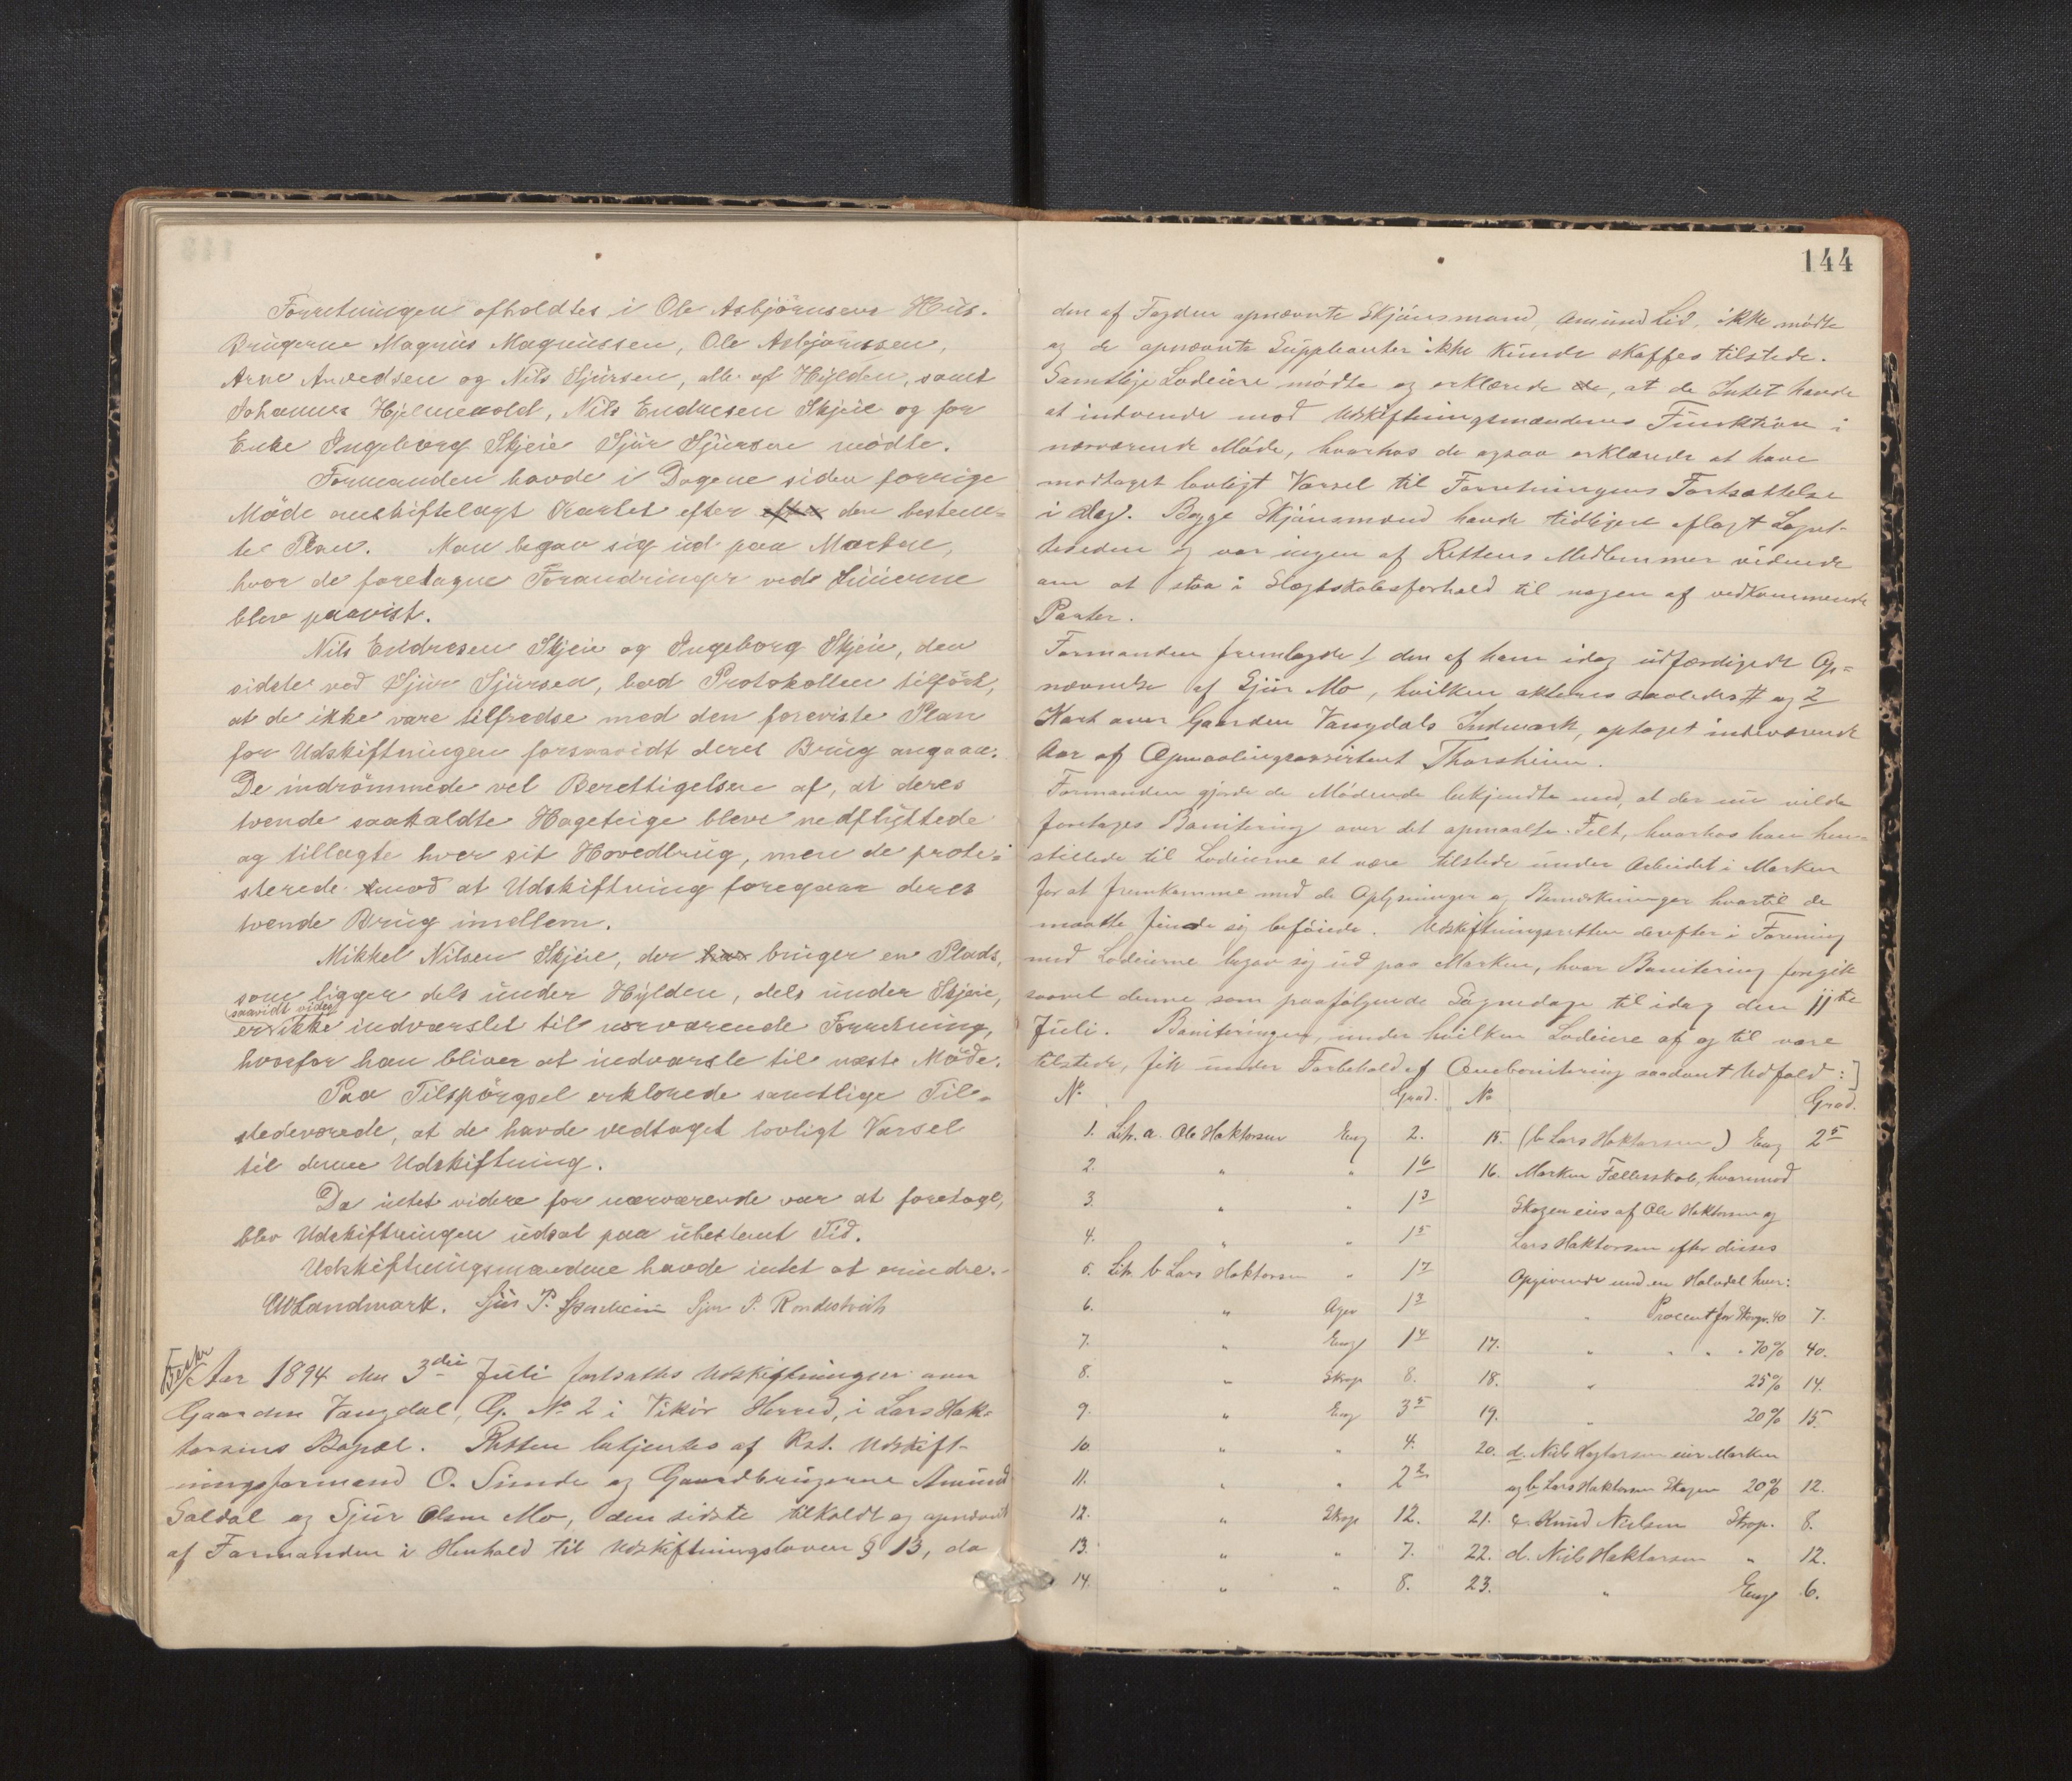 Forretningen afholdtes i Ole Asbjørnsens Hus.
Brugerne Magnus Magnussen, Ole Asbjørnssen,
Arne Arvedsen og Nils Sjursen, alle af Hylden, samt
Johannes Hjelmevold, Nils Endresen Skjeie og for
Enke Ingeborg Skjeie Sjur Sjursen mødte.
Formanden havde i Dagene siden forrige
Møde udskiftelagt Kartet efter efter den bestem-
te Plan. Man begav sig ud paa Marken,
hvor de foretagne Forandringer ved Linierne
blev paavist.
Nils Endresen Skjeie og Ingeborg Skjeie, den
sidste ved Sjur Sjursen, bad Protokollen tilført,
at de ikke vare tilfredse med den foreviste Plan
for Udskiftningen forsaavidt deres Brug angaar.
De indrømmede vel Berettigelsen af, at deres
tvende saakaldte Hageteige bleve nedflyttede
og tillagte hver sit Hovedbrug, men de prote-
sterede imod at Udskiftning foregaar deres
tvende Brug imellem.
Mikkel Nilsen Skjeie, der har bruger en Plads,
som ligger dels under Hylden, dels under Skjeie,
saavidt vides
er ikke indvarslet til nærværende Forretning,
hvorfor han bliver at indvarsle til næste Møde.
Paa Tilspørgsel erklærede samtlige Til-
stedeværende, at de havde vedtaget lovligt Varsel
til denne Udskiftning.
Da intet videre for nærværende var at foretage,
blev Udskiftningen udsat paa ubestemt Tid.
Udskiftningsmændene havde intet at erindre.
CWLandmark. Sjur P. Sponheim Sjur P. Rondestveit
Aar 1894 den 3die Juli fortsattes Udskiftningen over
Gaarden Vangdal, G. No 2 i Vikør Herred, i Lars Hak-
torsens Bopæl. Retten betjentes af Kst. Udskift-
ningsformand O. Sunde og Gaardbrugerne Amund
Saldal og Sjur Olsen Mo, den sidste tilkaldt og opnævnt
af Formanden i Henhold til Udskiftningsloven § 13, da
144
den af Fogden opnævnte Skjønsmand, Amund Lid, ikke mødte
og de opnævnte Suppleanter ikke kunde skaffes tilstede.
Samtlige Lodeiere mødte og erklærede de, at de Intet havde
at indvende mod Udskiftningsmændenes Funktion i
nærværende Møde, hvorhos de ogsaa erklærede at have
modtaget lovligt Varsel til Forretningens Fortsættelse
i dag. Begge Skjønsmænd havde tidligere aflagt Lagret-
teseden og var ingen af Rettens Medlemmer vidende
om at staa i Slægtskabsforhold til nogen af vedkommende
Parter.
Formanden fremlagde 1 den af ham idag udfærdigede Op-
nævnelse af Sjur Mo, hvilken akteres saaledes # og 2
Kart over Gaarden Vangdals Indmark, optaget indeværende
Aar af Opmaalingsassistent Thorsheim.
Formanden gjorde de Mødende bekjendte med, at der nu vilde
foretages Bonitering over det opmaalte Felt, hvorhos han hen-
stillede til Lodeierne at være tilstede under Arbeidet i Marken
for at fremkomme med de Oplysninger og Bemærkninger hvortil de
maatte finde sig beføiede. Udskiftningsretten derefter i Forening
med Lodeierne begav sig ud paa Marken, hvor Bonitering foregik
saavel denne som paafølgende Søgnedage til idag den 11te
Juli. Boniteringen, under hvilken Lodeiere af og til vare
tilstede, fik under Forbehold af Ombonitering saadant Udfald:
No Grad. No Grad.
1. Litr. a. Ole Haktorsen Eng 2. 15. (b Lars Haktorsen) Eng 2 5
2. " " 1 6 16. Marken Fællesskab, hvorimod
3. " " 1 3 Skogen eies af Ole Haktorsen og
4. " " 1 5 Lars Haktorsen efter disses
5. Litr. b Lars Haktorsen " 1 7 Opgivende med en Halvdel hver:
6. " Ager 1 3 " Procent for Skog. 40 7.
7. " Eng 1 4 17. " " " 70% 40.
8. " Skog 8. 18. " 25% 14.
9. " Eng 3 5 19. " 20% 15.
10. " " 4. 20. d. Nils Hagtorsen eier Marken
11. " " 2 2 og b Lars Haktorsen Skogen 20% 12.
12. " Skog 12. 21. c. Knud Nielsen Skog. 8.
13. " " 7. 22. d. Niels Haktorsen " 12.
14. " " 8. 23. " Eng 6.